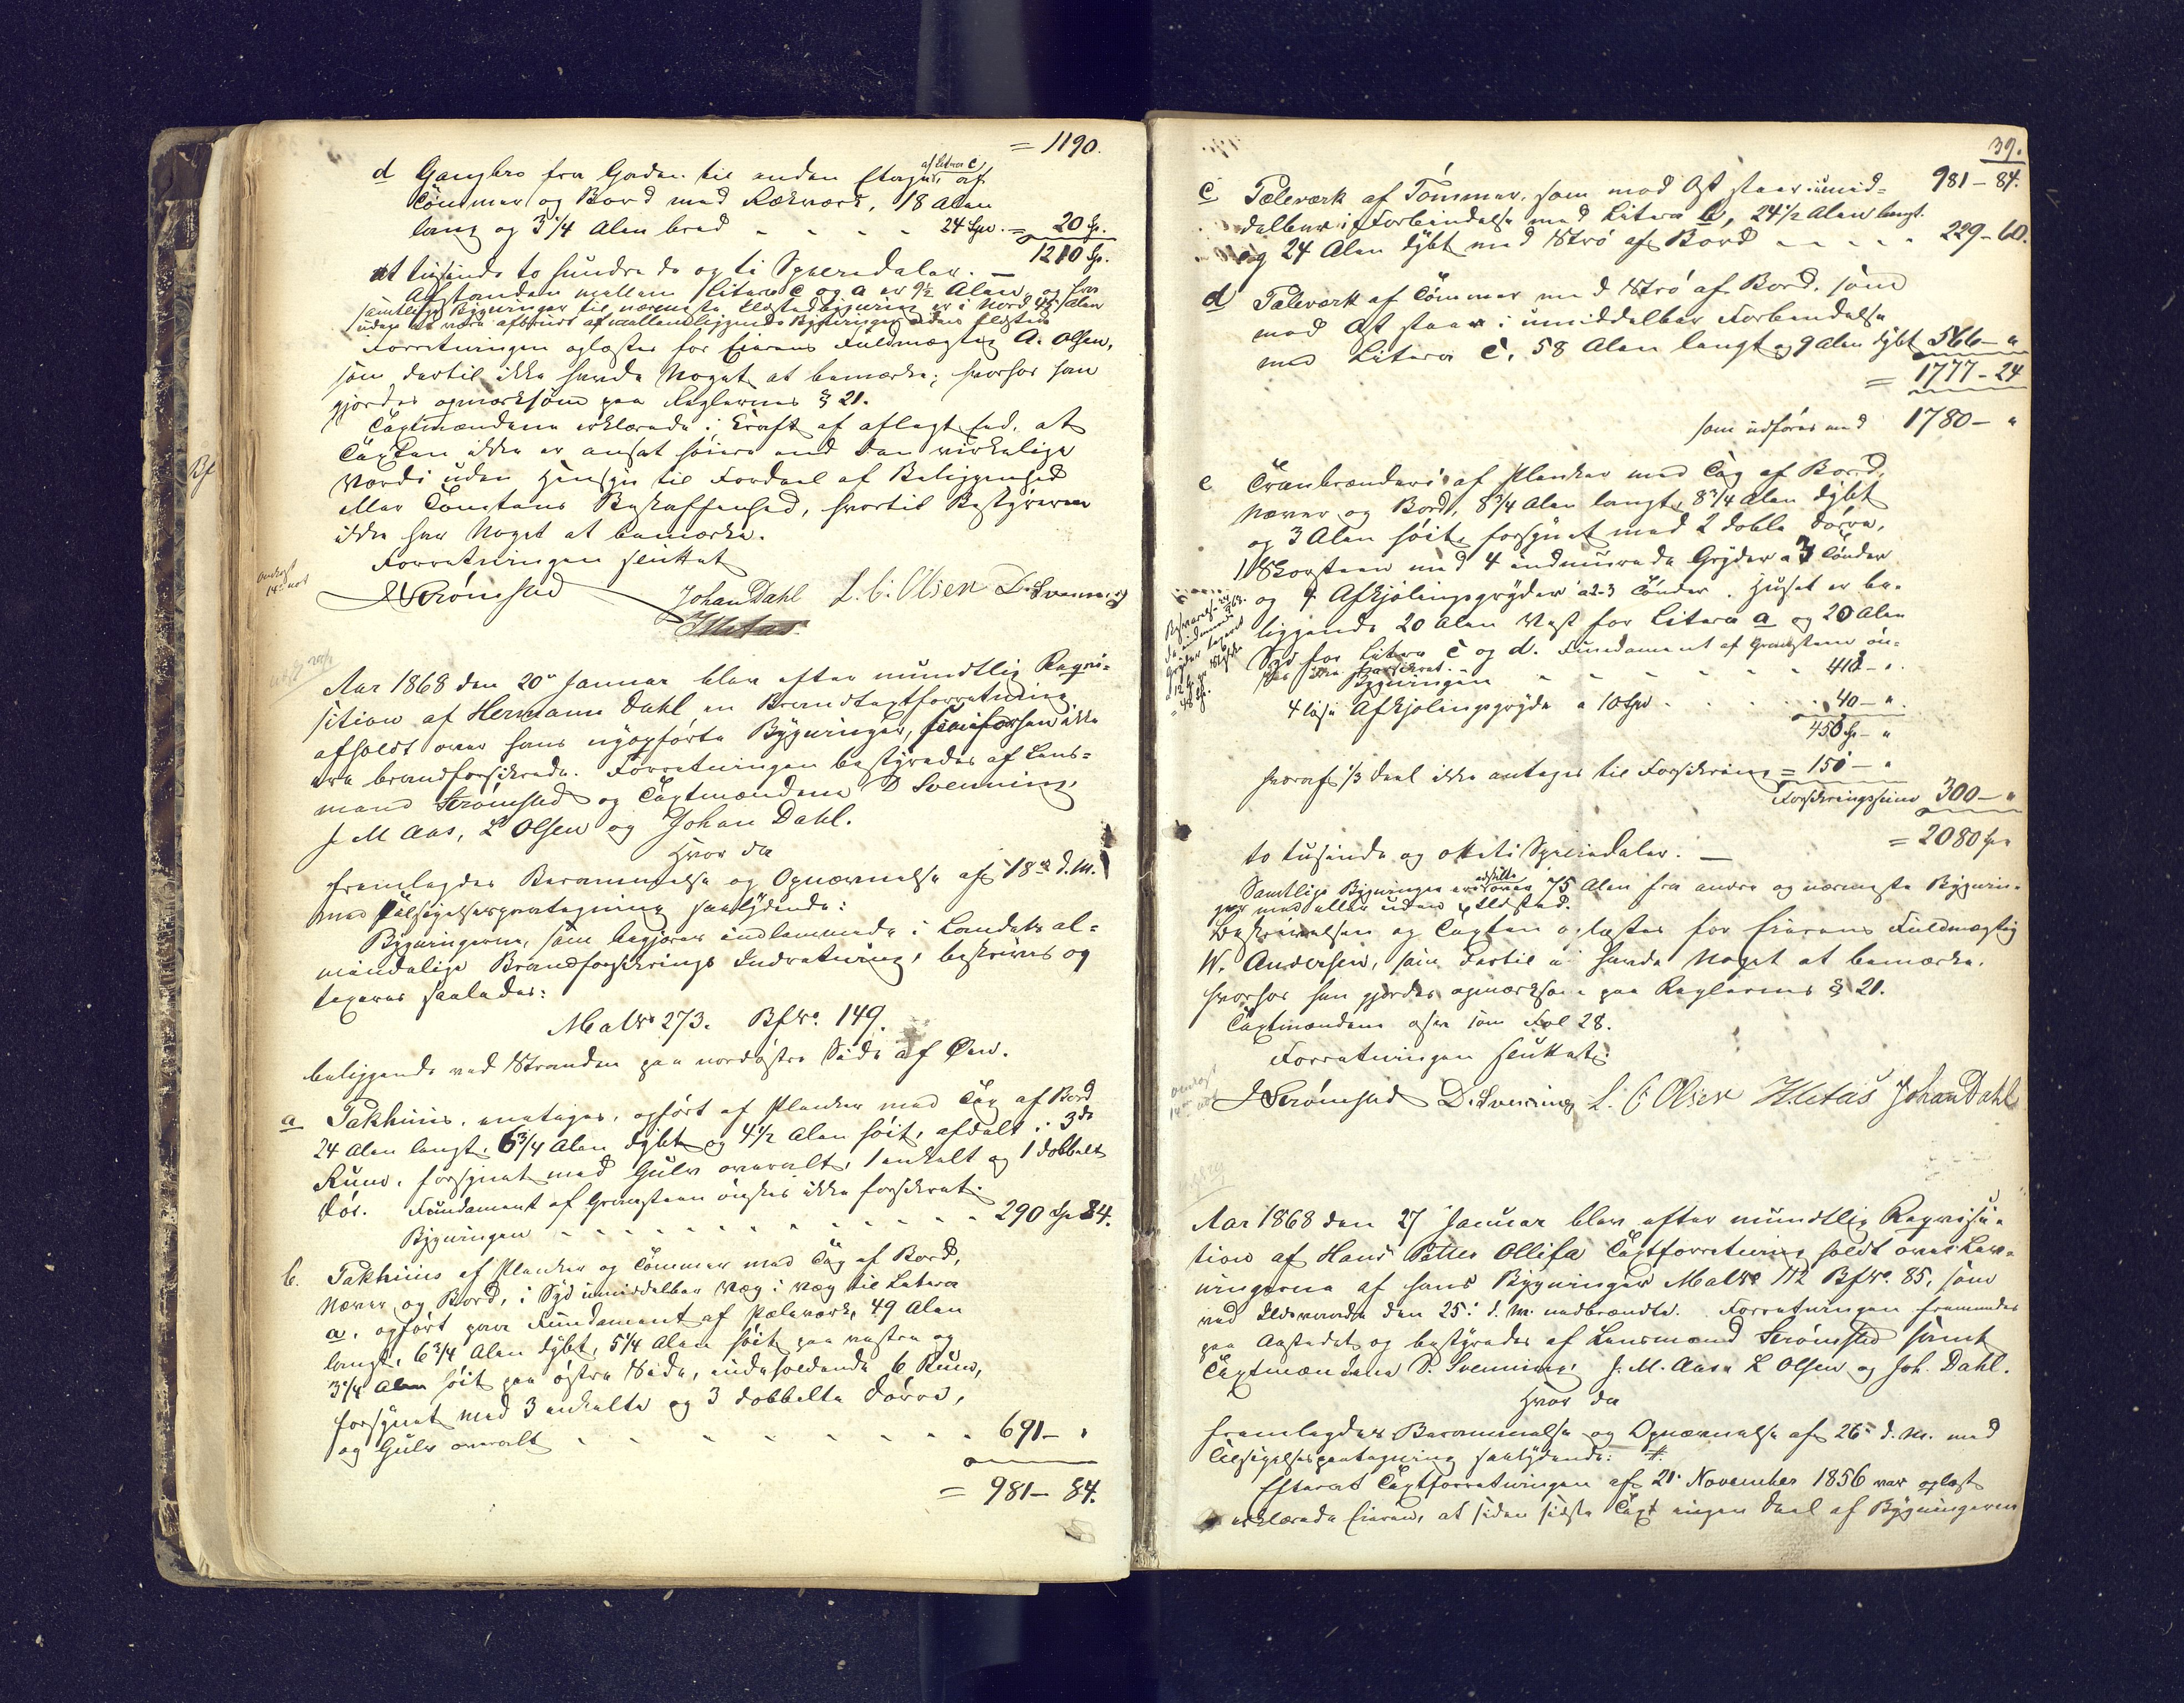 = 1190.
d Gangbro fra Gaden til anden Etage af Litra C, af
Tømmer og Bord med Rækværk, 18 Alen
lang og 3 1/4 Alen bred - - - - 24 Spd. = 20 Sp.
1210 Sp.
et tusinde to hundrede og ti Speciedaler. —
Afstanden mellem Litera C og a er 9½ Alen, og fra
samtlige Bygninger til nærmeste Ildstedbygning er i Nord 45 Alen
uden at være afbrudt af mellemliggende Bygninger uden Ildsted
Forretningen oplæstes for Eierens Fuldmægtig A. Olsen,
som dertil ikke havde Noget at bemærke; hvorhos han
gjordes opmærksom paa Reglernes § 21.
Taxtmændene erklærede i Kraft af aflagt Eed, at
Taxten ikke er ansat høiere end den virkelige
Værdi uden Hensyn til Fordeel af Beliggenhed
eller Tomtens Beskaffenhed, hvortil Bestyreren
ikke har Noget at bemærke.
Forretningen sluttet
JStrømsted Johan Dahl L. C. Olsen D. Svenning
JMAas
Aar 1868 den 20de Januar blev efter mundtlig Reqvi=
sition af Hermann Dahl en Brandtaxtforretning
afholdt over hans nyopførte Bygninger, som forhen ikke
ere brandforsikrede. Forretningen bestyredes af Lens=
mand Strømsted og Taxtmændene D Svenning,
J. M Aas, L Olsen og Johan Dahl.
Hvor da
fremlagdes Berammelse og Opnævnelse af 18de d. M.
med Tilsigelsespaategning saalydende:
Bygningerne, som begjæres indlemmede i Landets al=
mindelige Brandforsikrings Indretning, beskrives og
taxeres saaledes:
Mat№ 273. Bf№. 149.
beliggende ved Stranden paa nordøstre Side af Øen.
a Pakhuus, enetages, opført af Planker med Tag af Bord
24 Alen langt, 6 3/4 Alen dybt og 4 1/2 Alen høit, afdelt i 3de
Rum, forsynet med Gulv overalt, 1 enkelt og 1 dobbelt
Dør. Fundament af Graasteen ønskes ikke forsikret.
Bygningen - - - - - - - - - - 290 Sp 84.
b. Pakhuus af Planker og Tømmer med Tag af Bord,
Næver og Bord, i Syd umiddelbar Væg i Væg til Litera
a, opført paa Fundament af Pæleværk, 49 Alen
langt, 6 3/4 Alen dybt, 5 1/4 Alen høit paa vestre og
3 1/4 Alen høit paa østre Side, indeholdende 6 Rum,
forsynet med 3 enkelte og 3 dobbelte Dørre,
og Gulv overalt - - - - - - - 691 - "
= 981 - 84.
39.
981 - 84.
c Pæleværk af Tømmer, som mod Øst staar i umid=
delbar i Forbindelse med Litera b, 24 1/2 Alen langt
og 24 Alen dybt med Strø af Bord - - - - - 229 - 60.
d Pæleværk af Tømmer med Strø af Bord, som
mod Øst staar i umiddelbar Forbindelse
med Litera C, 58 Alen langt og 9 Alen dybt 566 - "
= 1777 - 24
som udføres med 1780 - "
e Tranbrænderi af Planker med Tag af Bord,
Næver og Bord, 8 3/4 Alen langt, 8 3/4 Alen dybt
og 3 Alen høit, forsynet med 2 doble Dørre,
1 Skorsteen med 4 indmurede Gryder a 3 Tønder
og 4 Afkjølingsgryder a 2-3 Tønder. Huset er be=
liggende 20 Alen Vest for Litera a og 20 Alen
Syd for Litera C og d. Fundament af Graasteen øn=
skes ikke forsikret.
Bygningen - - - - - - 410 - "
4 løse Afkjølingsgryder a 10 Spd - - - - 40 - "
450 Sp - "
hvoraf 1/3 Deel ikke antages til Forsikring = 150 - "
Forsikringssum 300 - "
= 2080 Sp
to tusinde og otteti Speciedaler. —
Samtlige Bygninger ere adskilte over 75 Alen fra andre og nærmeste Bygnin=
ger med eller uden Ildsted.
Beskrivelsen og Taxten oplæstes for Eierens Fuldmægtig
W. Andersen, som dertil ei havde Noget at bemærke,
hvorhos han gjordes opmærksom paa Reglernes § 21.
Taxtmændene afgav som Fol 28.
Forretningen sluttet.
JStrømsted D. Svenning L. C Olsen JMAas Johan Dahl
Aar 1868 den 27 Januar blev efter mundtlig Reqvisi=
tion af Hans Petter Ollifa Taxtforretning holdt over Lev=
ningerne af hans Bygninger Mat№ 112 Bf№. 85, som
ved Ildsvaade den 25. d. M. nedbrændte. Forretningen fremmedes
paa Aastedet og bestyredes af Lensmand Strømsted samt
Taxtmændene D. Svenning, J. M. Aas, L Olsen og Joh. Dahl.
Hvor da
fremlagdes Berammelse og Opnævnelse af 26de d. M. med
Tilsigelsespaategning saalydende:
Efterat Taxtforretningen af 21. November 1856 var oplæst
erklærede Eieren, at siden sidste Taxt ingen Deel af Bygningerne